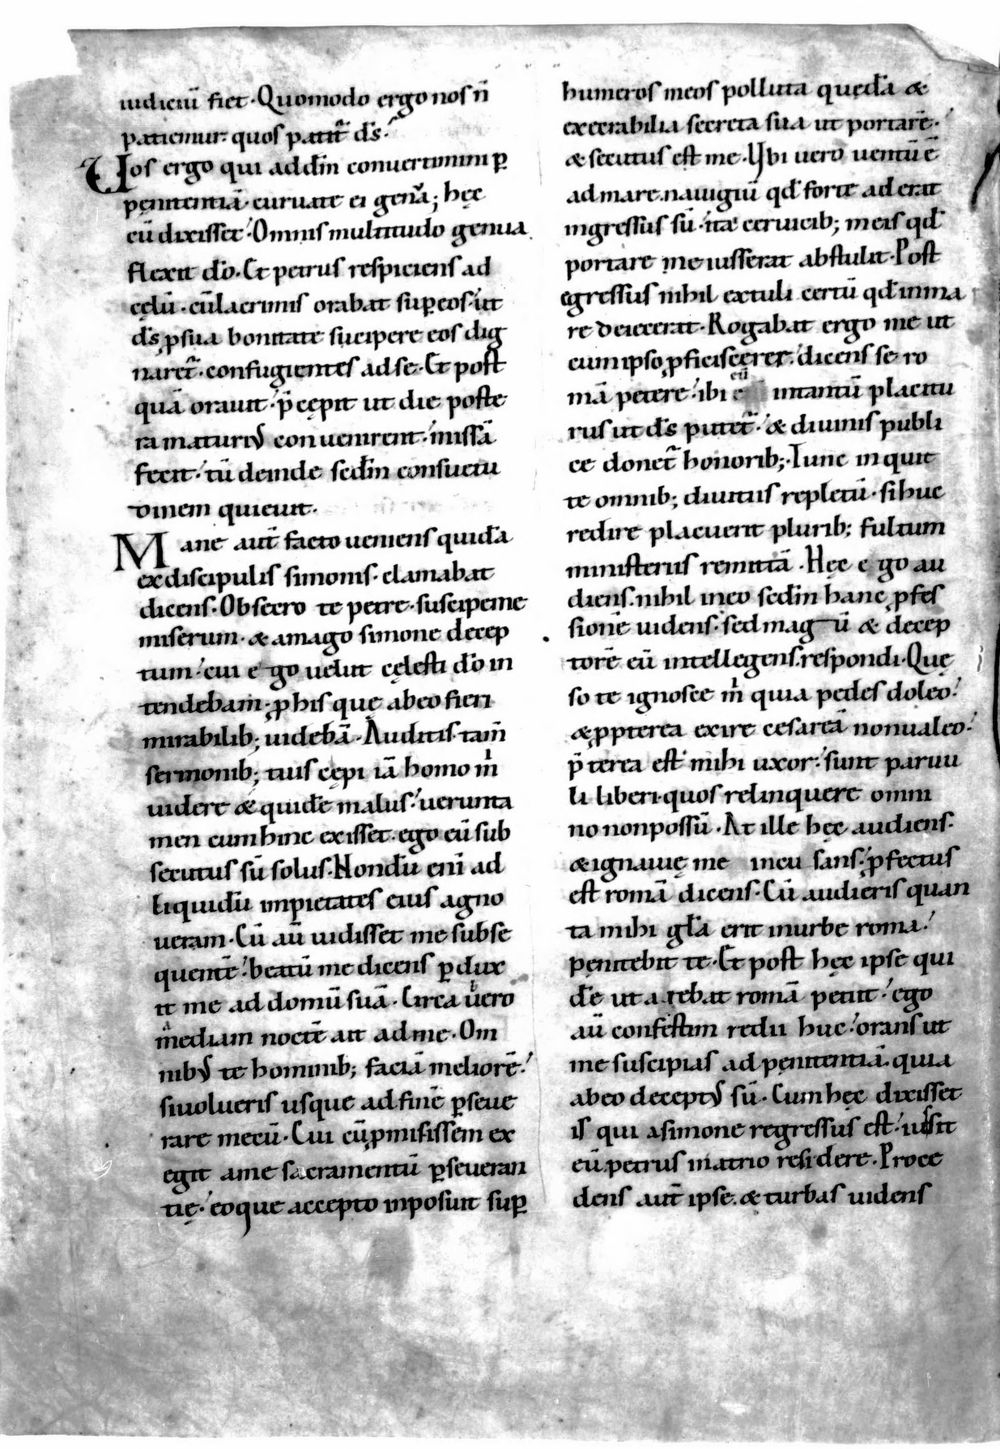 iudiciū fiet. Quomodo ergo nos n̄
patiemur. quos patit᷑ d̄s.
Vos ergo qui ad dn̄m conuertimini ꝑ
pęnitentiā. curuate ei genua; hęc
cū dixisset. Omnis multitudo genua
flexit d̄o. Et petrus respiciens ad
cęlū. cū lacrimis orabat sup̲ eos. ut
d̄s ꝓ sua bonitate suscipere eos dig
naret᷑. confugientes ad se. Et post
quā orauit. p̄cepit ut die poste
ra maturiꝰ conuenirent. missā
fecit. tū deinde sedīn consuetu
dinem quieuit.
Mane aut̄ facto ueniens quidā
ex discipulis simonis. clamabat
dicens. Obsecro te petre. suscipe me
miserum. & a mago simone decep
tum. cui ego uelut cęlesti d̄o in
tendebam. ꝓ his quę ab eo fieri
mirabilib; uidebā. Auditis tam̄
sermonib; tuis cępi iā homo m̄
uidere & quidē malus. uerunta
men cum hinc exisset. ego eū sub
secutus sū solus. Nondū eni ad
liquidū impietates eius agno
ueram. Cū aū uidisset me subse
quentē. beatū me dicens ꝑdux
it me ad domū suā. Circa uero
mediam noctē ait ad me. Om
nibꝰ te hominib; faciā meliorē.
si uolueris usque ad finē ꝑseue
rare mecū. Cui cū ꝓmisissem ex
egit a me sacramentū ꝑseueran
tię. eoque accepto inposuit suꝑ
humeros meos polluta quędā &
execrabilia secreta sua ut portarē.
& secutus est me. Vbi uero uentū ē
ad mare. nauigiū qd̄ forte ad erat
ingressus sū. ita ceruicib; meis qd̄
portare me iusserat abstulit. Post
egressus nihil extuli. certū qd̄ in ma
re deiecerat. Rogabat ergo me ut
cum ipso ꝓficiscerer. dicens se ro
mā petere. ibi eū intantū placitu
rus ut d̄s putet᷑. & diuinis publi
ce donet᷑ honorib;. Tunc inquit
te omnib; diuitiis repletū. si huc
redire placuerit plurib; fultum
ministeriis remittā. Hęc ego au
diens. nihil in eo sedīn hanc ꝓfes
sionē uidens. sed magū & decep
torē eū intellegens. respondi. Quę
so te ignosce m̄ quia pedes doleo.
& ꝓpterea exire cesareā non ualeo.
p̄terea est mihi uxor. sunt paruu
li liberi. quos relinquere omni
no non possū. At ille hęc audiens.
& ignauię me incusans. ꝓfectus
est romā dicens. Cū audieris quan
ta mihi gl̄a erit in urbe roma.
penitebit te. Et post hęc ipse qui
dē ut aiebat romā petiit. ego
aū confestim redii huc. orans ut
me suscipias ad pęnitentiā. quia
ab eo deceptꝰ sū. Cum hęc dixisset
is qui a simone regressus est. iussit
eū petrus in atrio residere. Proce
dens aut̄ ipse. & turbas uidens